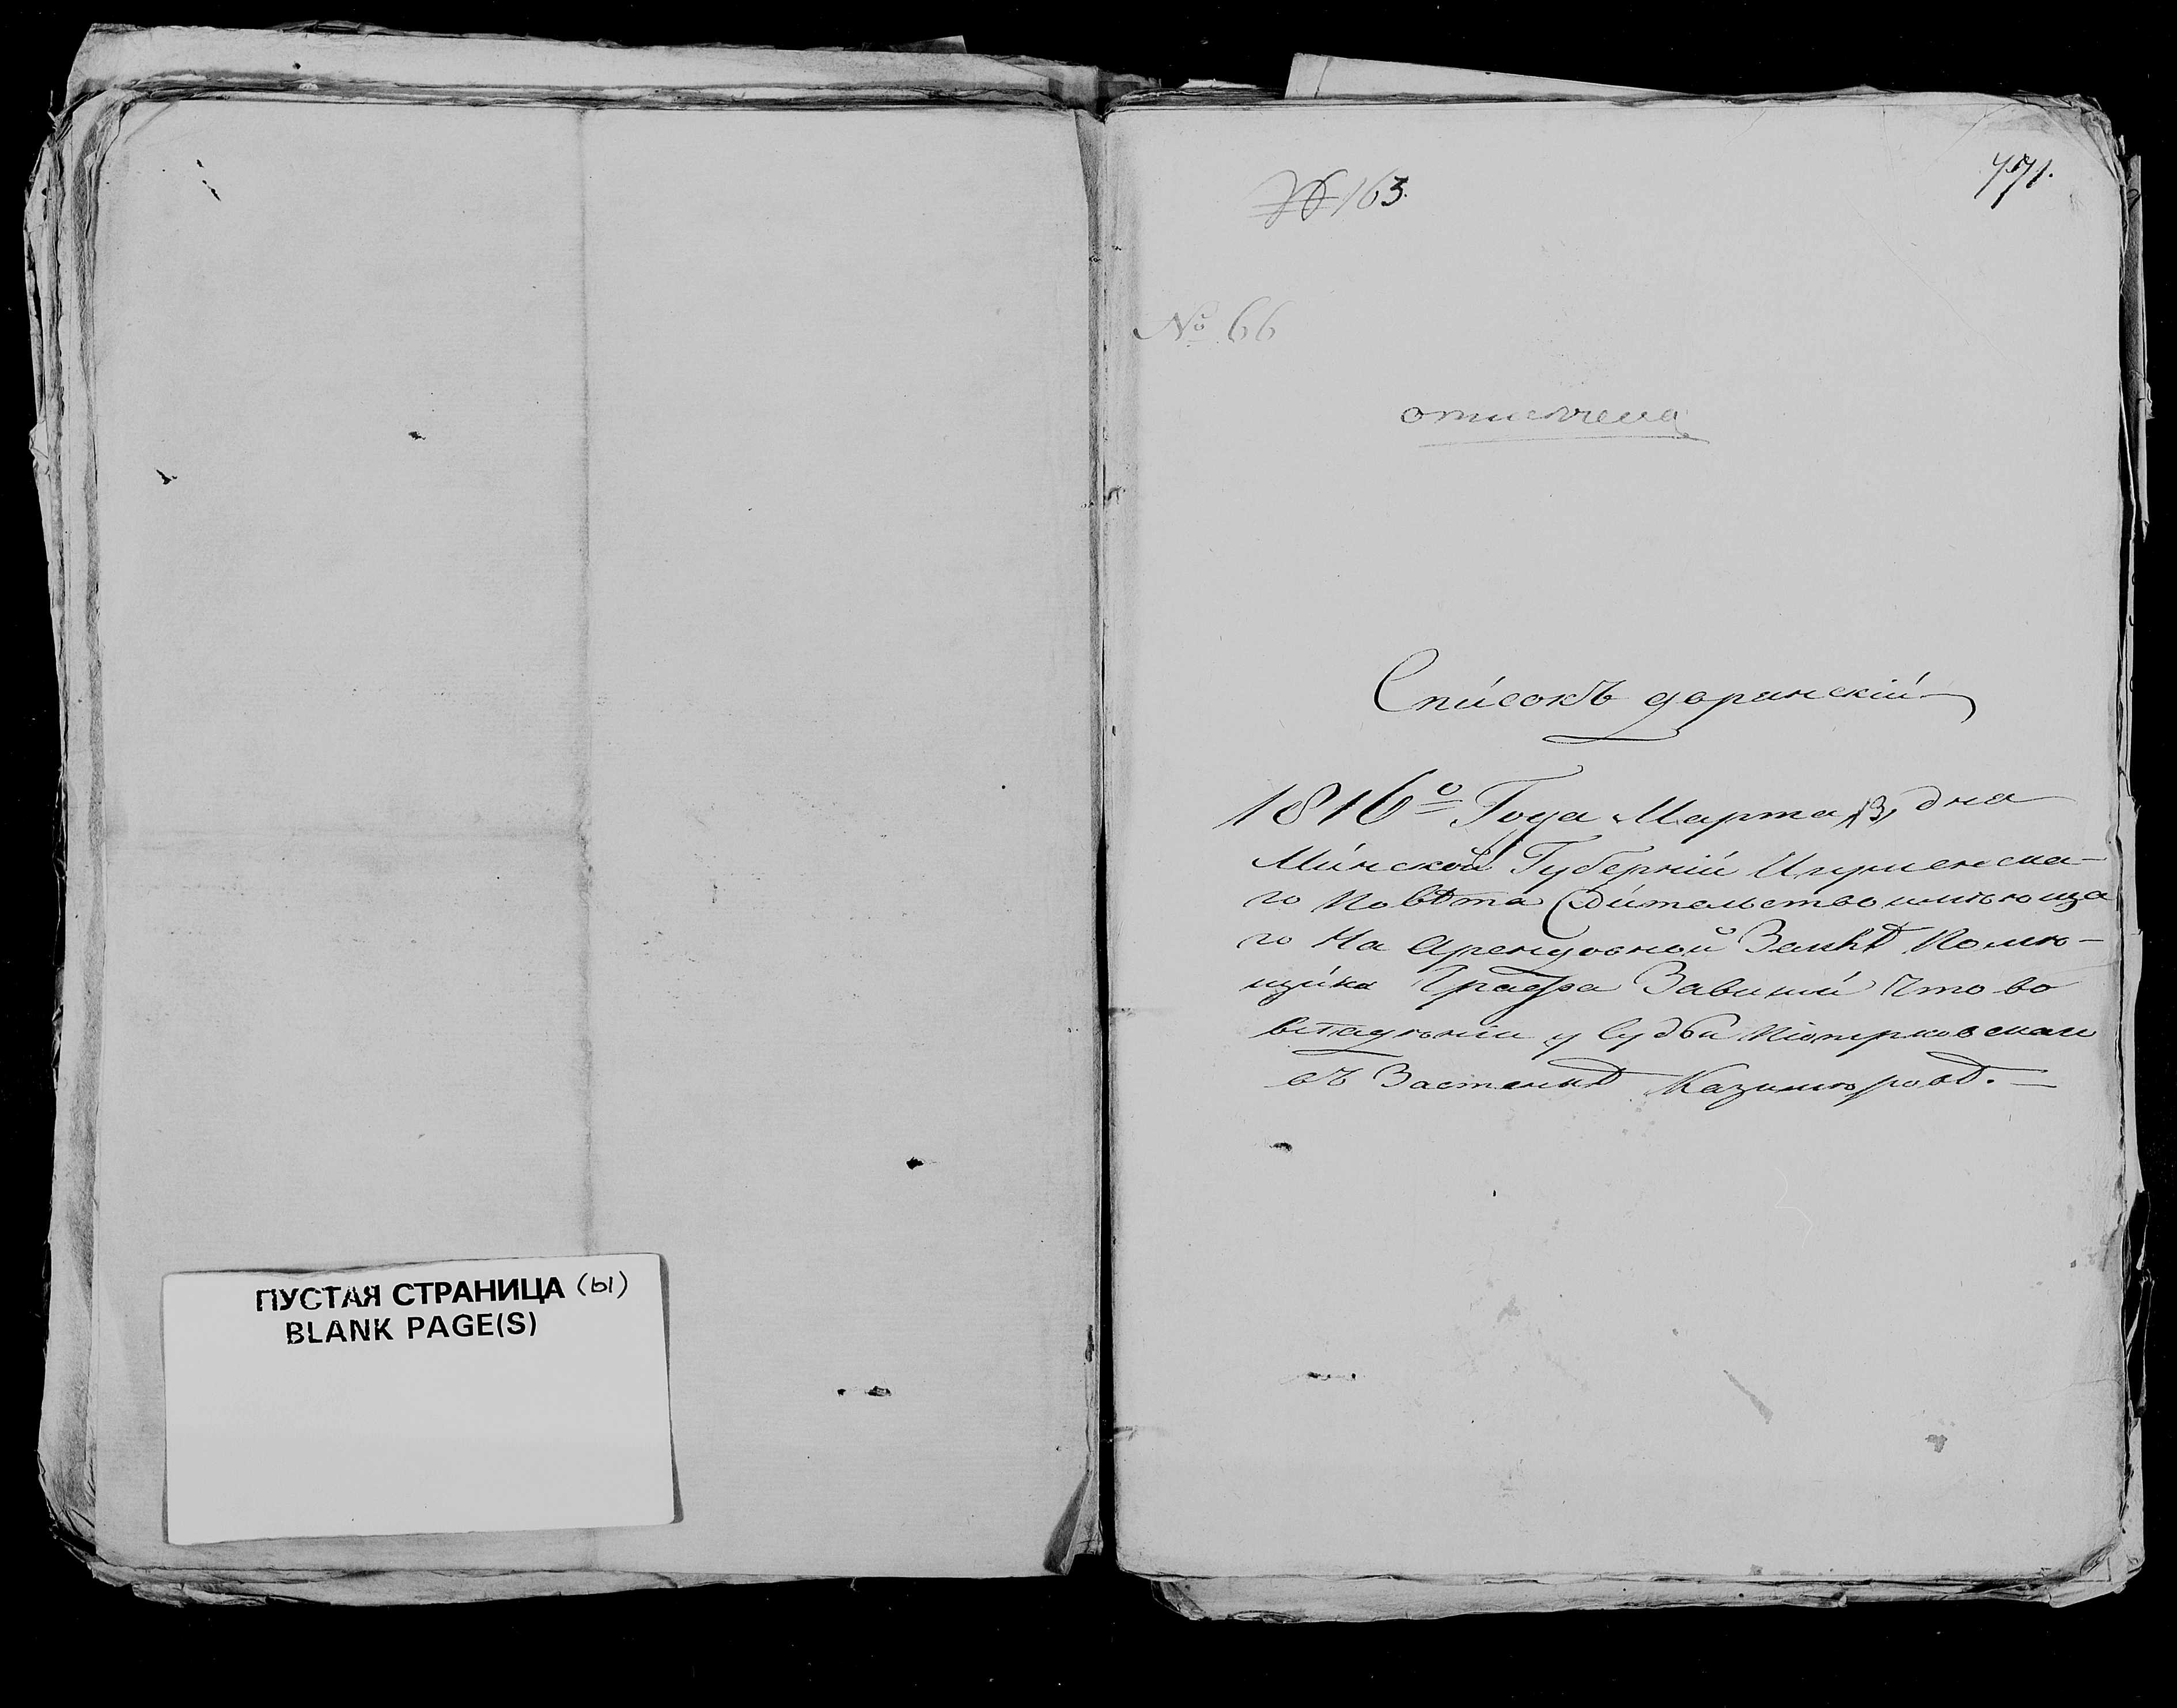 ПУСТАЯ СТРАНИЦА (ы)
BLANK PAGE(S)
№ 163.
771.
№ 66
отмечена
Списокъ дворянскій
1816º Года Марта 13, дня
Минской Губерніи Игуменска-
го Повѣта Жительство имѣюща
го На Арендовной Землѣ Помѣ-
щика Графа Завиши Что во
владѣніи у Судьи
въ Застенкѣ Казимѣровѣ.